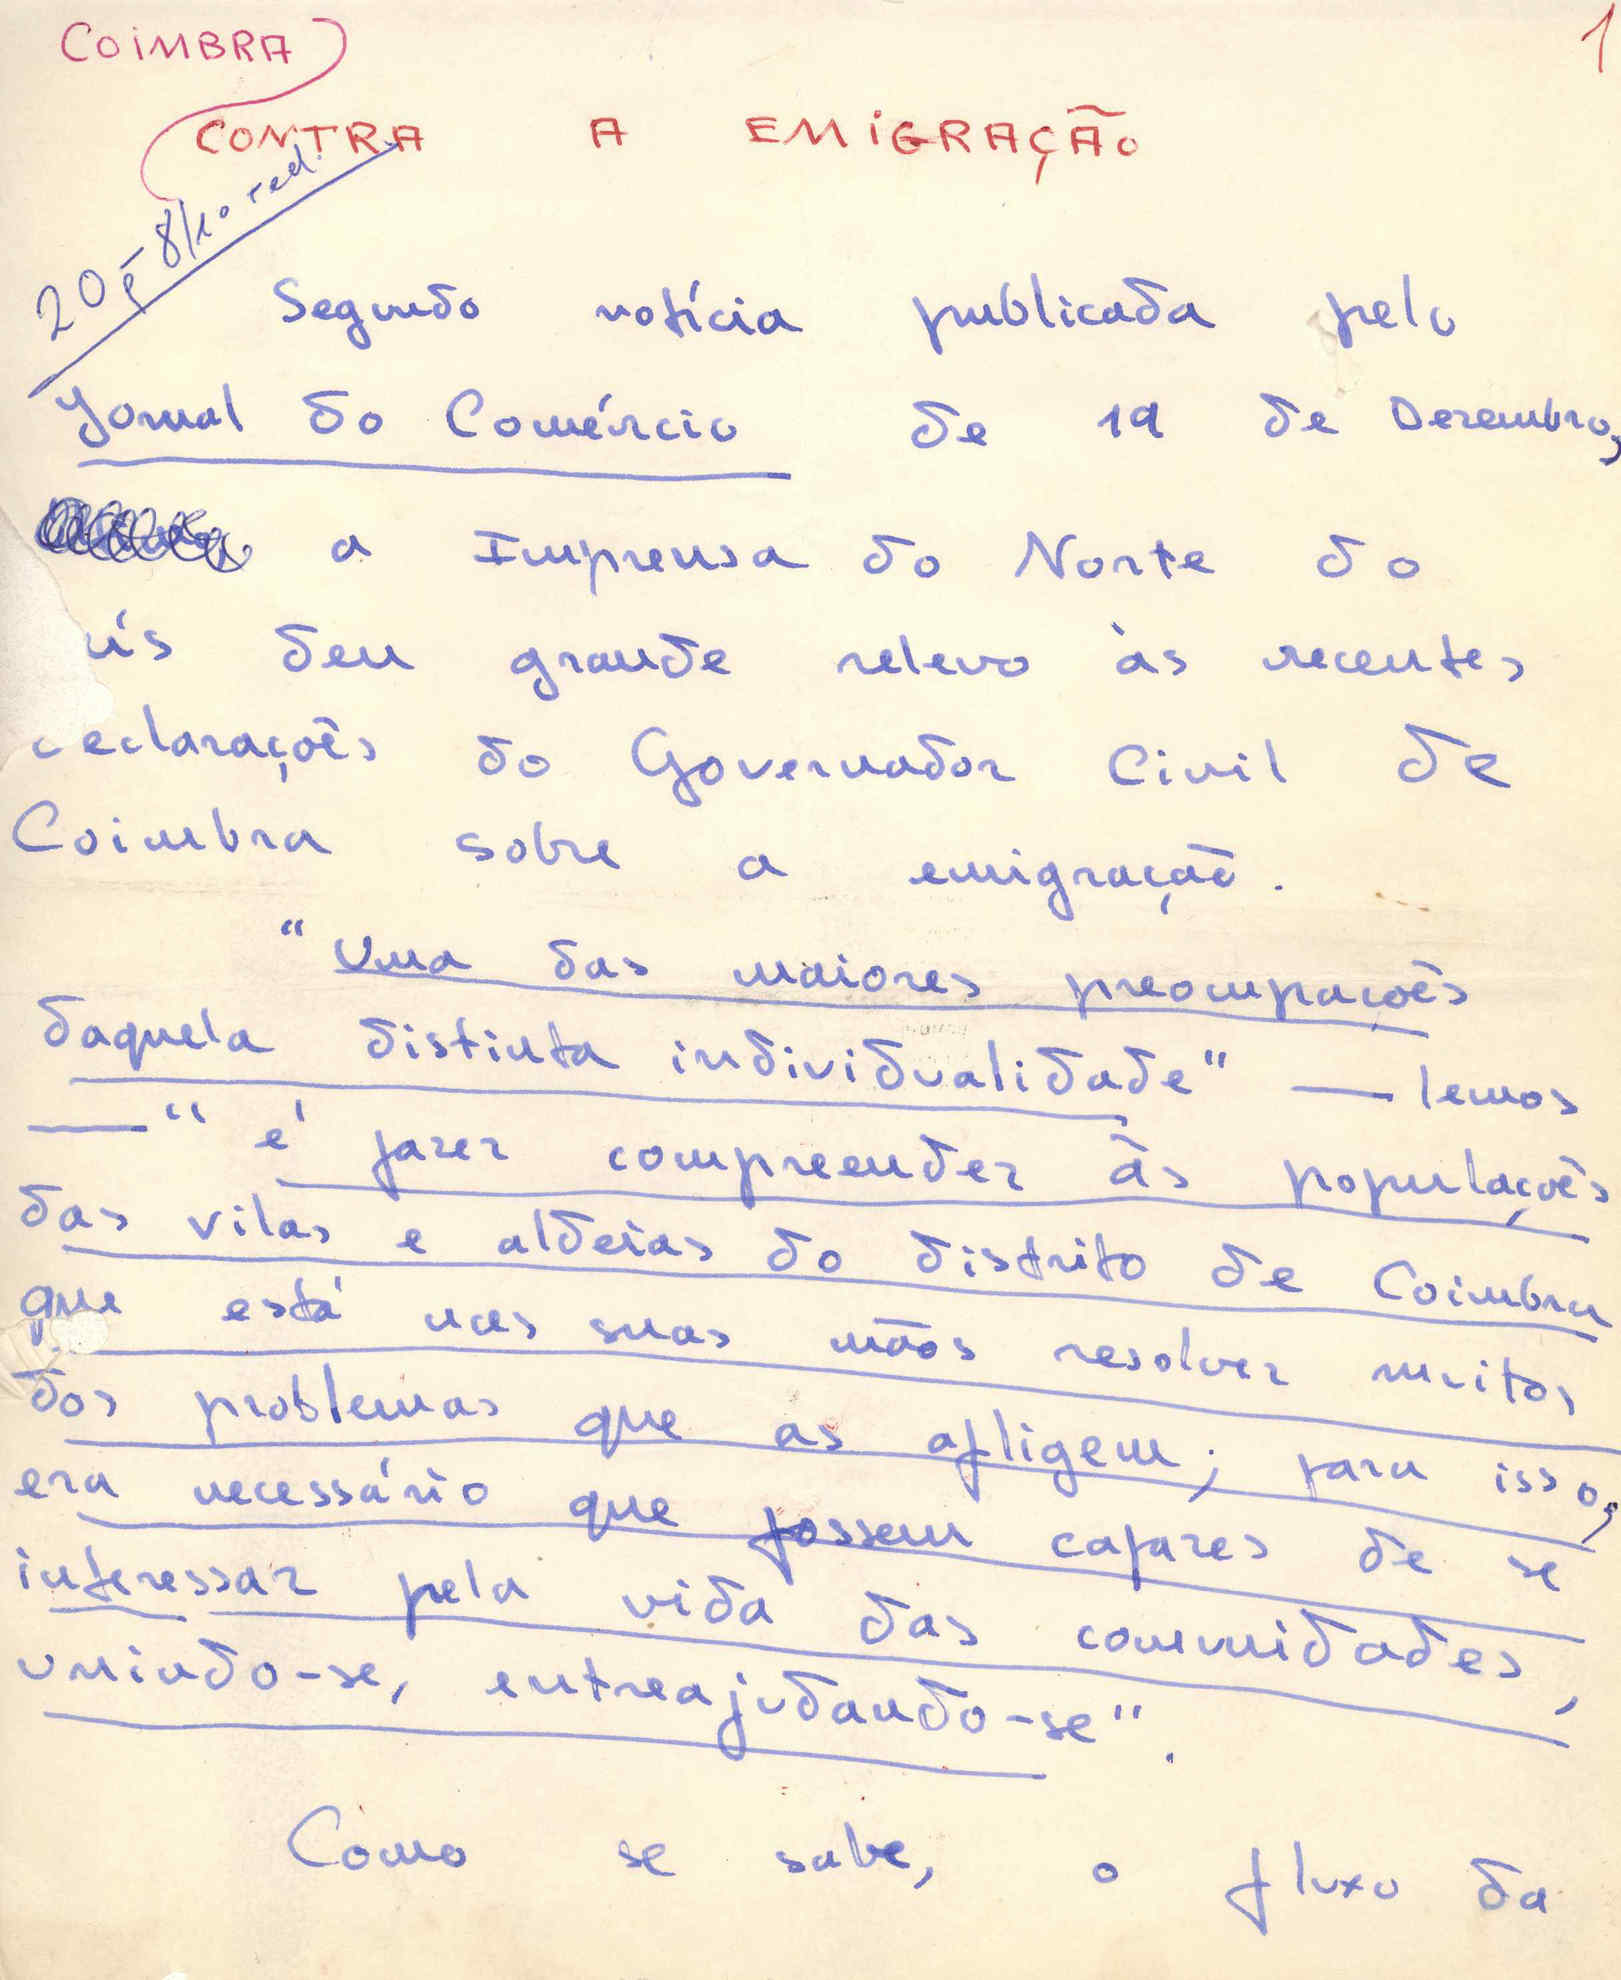 COIMBRA
1
CONTRA A EMIGRAÇÃO
20 8/10 red.
Segundo notícia publicada pelo
Jornal do Comércio de 19 de Dezembro,
a Imprensa do Norte do
ís deu grande relevo às recentes
declarações do Governador Civil de
Coimbra sobre a emigração.
"Uma das maiores preocupações
daquela distinta individualidade" — lemos
— "é fazer compreender às populações
das vilas e aldeias do distrito de Coimbra
que está nas suas mãos resolver muitos
dos problemas que as afligem; para isso,
era necessário que fossem capazes de se
interessar pela vida das comunidades,
unindo-se, entreajudando-se".
Como se sabe, o fluxo da